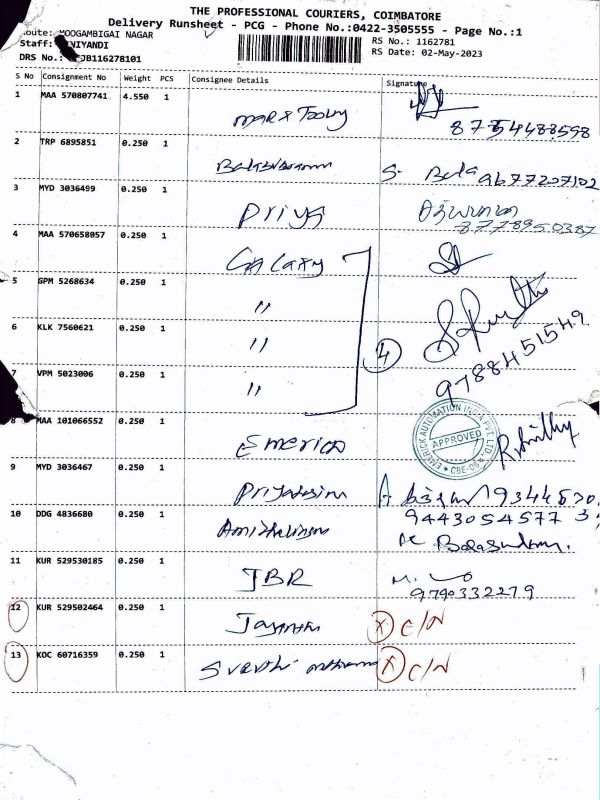 THE PROFESSIONAL COURIERS, COIMBATORE
Delivery Runsheet - PCG - Phone No.:0422-3505555 - Page No.:1
Route: MOOGAMBIGAI NAGAR
RS No.: 1162781
Staff:
RS Date: 02-May-2023
DRS No.: JB116278101
S No Consignment No Weight PCS Consignee Details Signature
1 MAA 570807741 4.550 1
2 TRP 6895851 0.250 1 S. Bala 9677207102
3 MYD 3036499 0.250 1 Priya
8778950387
4 MAA 570658057 0.250 1 Galaxy
5 GPM 5268634 0.250 1 "
6 KLK 7560621 0.250 1 " 4
9788451549
7 VPM 5023006 0.250 1 "
8 MAA 101066552 0.250 1 Emerick
EMERICK AUTOMATION INDIA PVT. LTD. APPROVED CBE-06
9 MYD 3036467 0.250 1
10 DDG 4836680 0.250 1 9443054577
Balasundaram.
11 KUR 529530185 0.250 1 JBR
9790332279
12 KUR 529502464 0.250 1 X C/N
13 KOC 60716359 0.250 1 X C/N